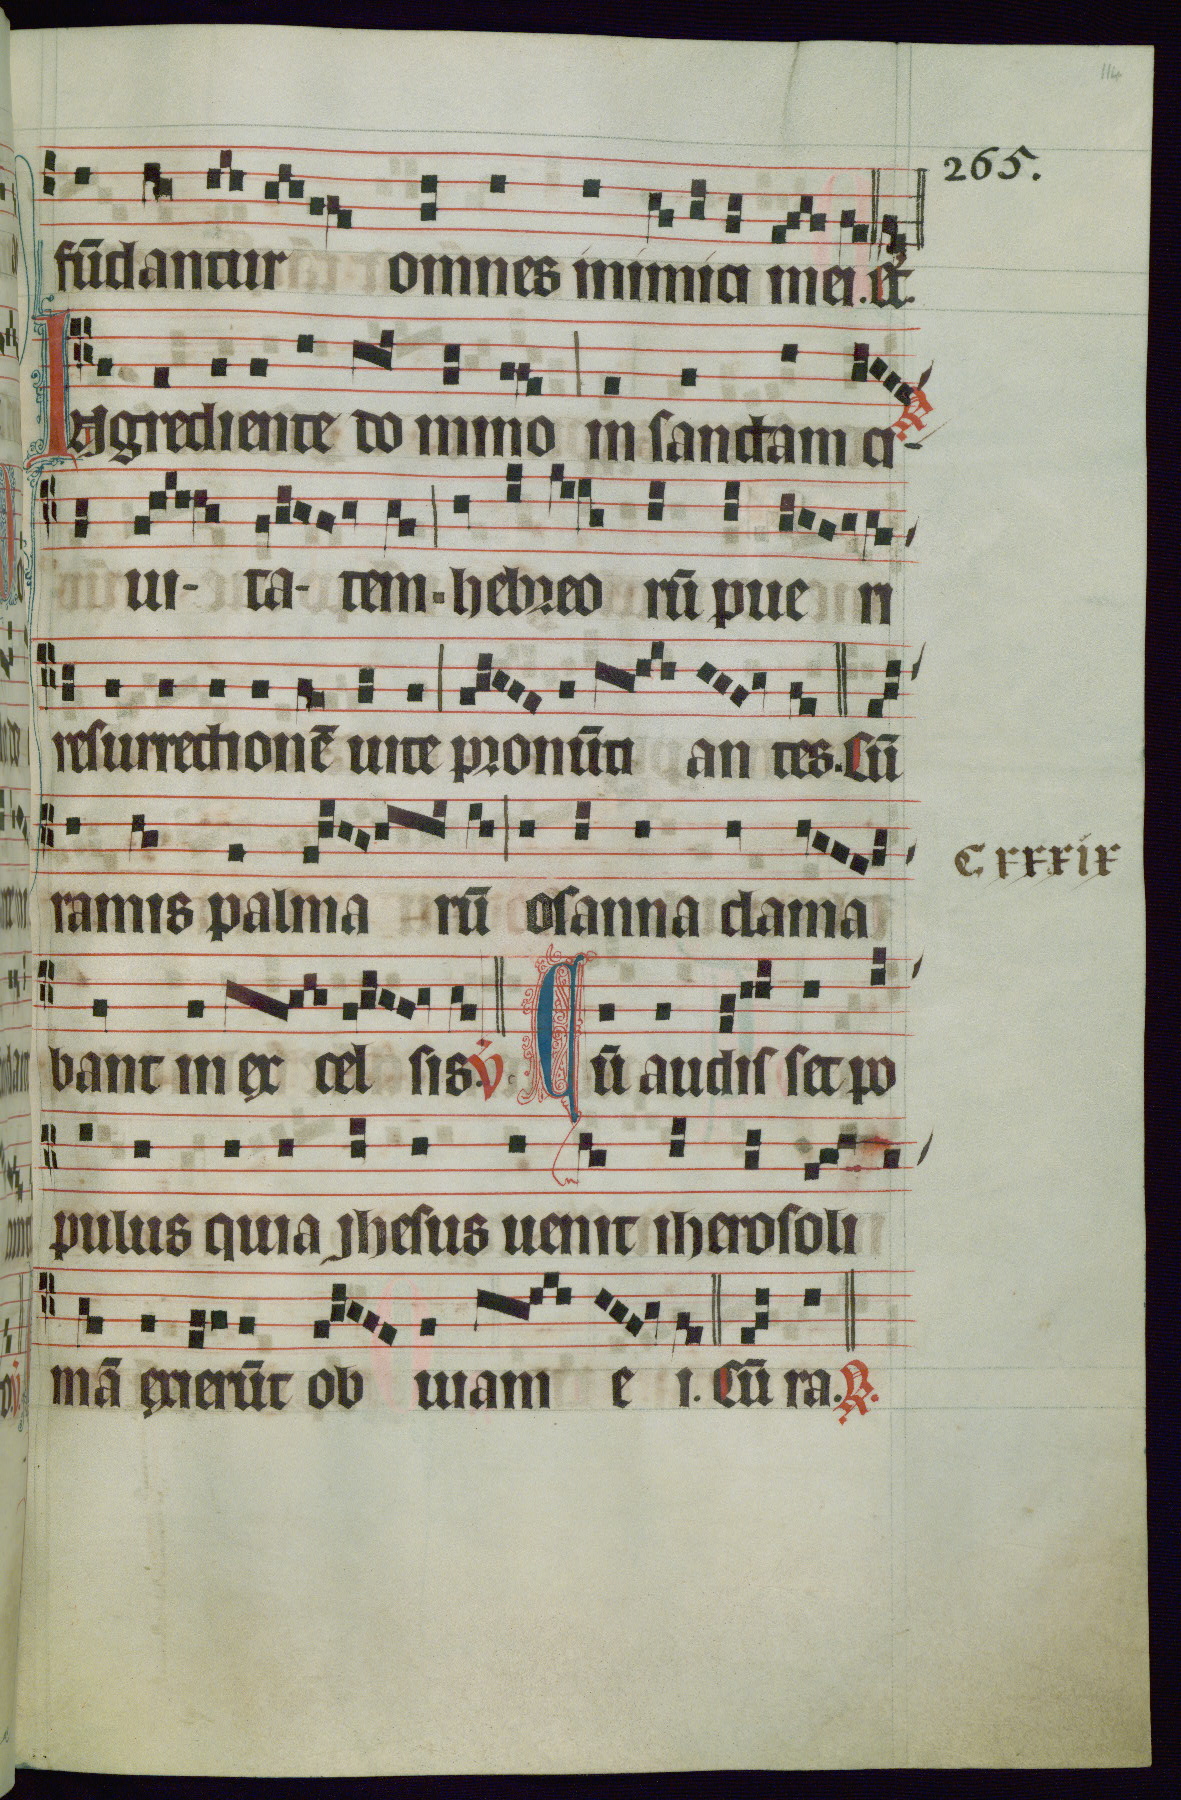 114
265.
fūdantur omnes inimici mei. Et.
Ingrediente do mino in sanctam ci-
R
ui- ta- tem. hebreo rū pue ri
resurrectionē uite pronūti an tes. Cū
ramis palma rū osanna clama
C xxxix
bant in ex cel sis. V. Cū audis set po
pulus quia jhesus uenit iherosoli
mā exierūt ob uiam e i. Cū ra. R.